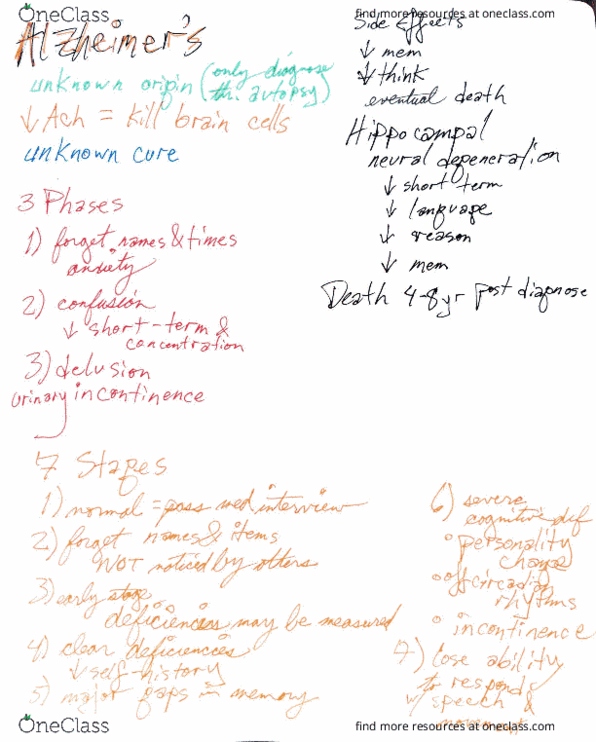 OneClass
find more resources at oneclass.com
find more resources at oneclass.com
Alzheimer's
unknown origin (only diagnose
thr. autopsy)
↓ Ach = kill brain cells
unknown cure
3 Phases
1) forget names & times
anxiety
2) confusion
↓ short-term &
concentration
3) delusion
urinary incontinence
Side Effects
↓ mem
↓ think
eventual death
Hippocampal
neural degeneration
↓ short term
↓ language
↓ reason
↓ mem
Death 4-8yr post diagnose
7 Stages
1) normal = pass med interview
2) forget names & items
NOT noticed by others
3) early stage
deficiencies may be measured
4) clear deficiencies
↓ self-history
5) major gaps in memory
6) severe
cognitive def
° personality
change
° off circadian
rhythms
° incontinence
7) lose ability
to respond
w/ speech &
OneClass
find more resources at oneclass.com
find more resources at oneclass.com